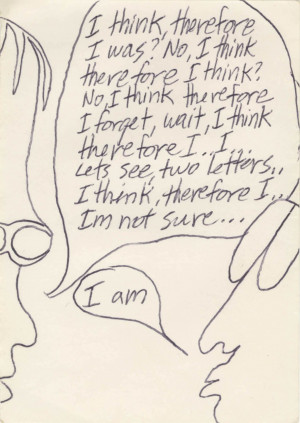 I think, therefore
I was? No, I think
therefore I think?
No, I think therefore
I forget, wait, I think
therefore I.. I...
Lets see, two letters..
I think, therefore I..
Im not sure...
I am